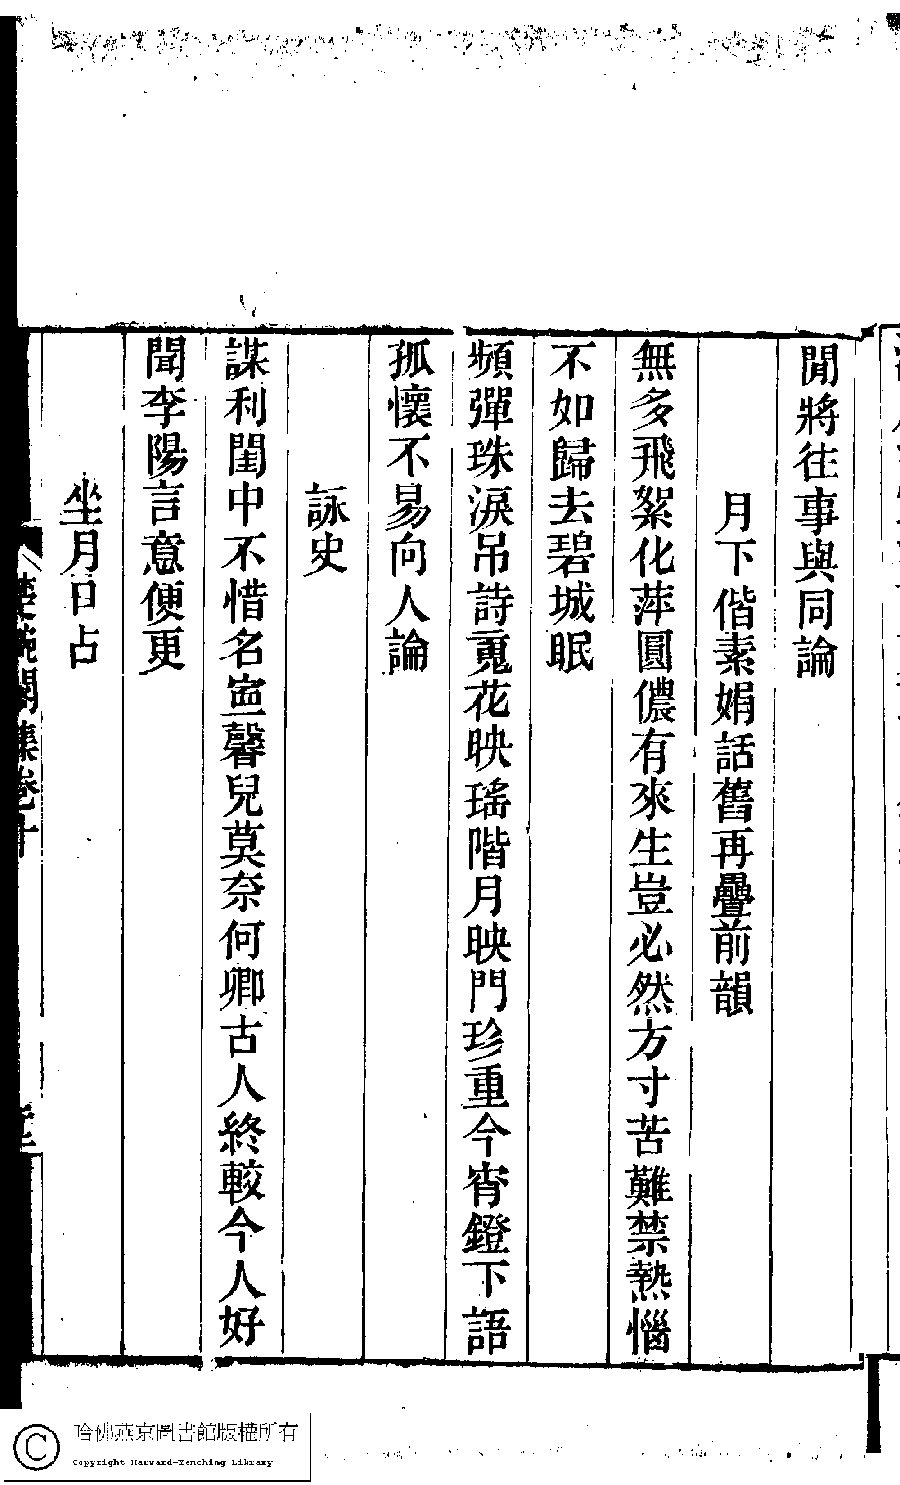 閒將往事與同論
月下偕素娟話舊再疊前韻
無多飛絮化萍圓儂有來生豈必然方寸苦難禁熱惱
不如歸去碧城眠
頻彈珠淚吊詩䰟花映瑤階月映門珍重今宵鐙下語
孤懷不易向人論
詠史
謀利閨中不惜名寍馨兒莫奈何卿古人終較今人好
聞李陽言意便更
坐月口占
集卷十
哈佛燕京圖書館版權所有
Copyright Harvard-Yenching Library